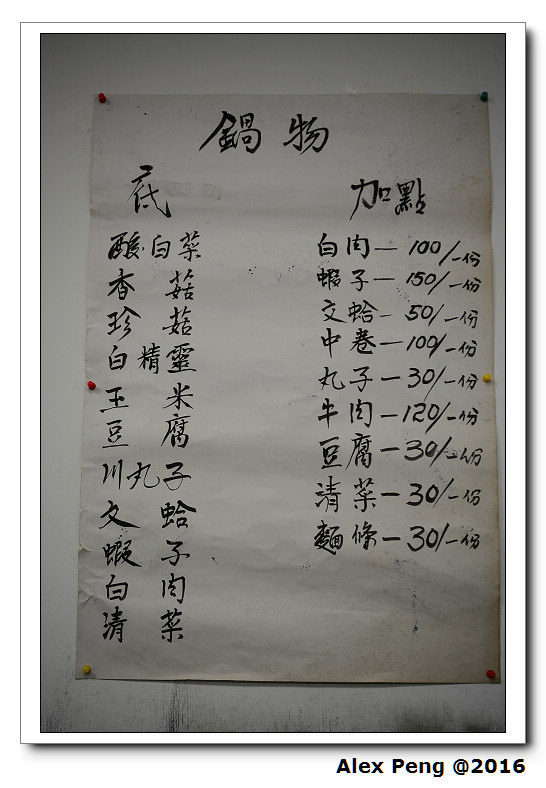 鍋物
底
酸白菜
香菇
珍菇
白精靈
玉米
豆腐
川丸子
文蛤
蝦子
白肉
清菜
加點
白肉—100/一份
蝦子—150/一份
文蛤—50/一份
中卷—100/一份
丸子—30/一份
牛肉—120/一份
豆腐—30/一份
清菜—30/一份
麵條—30/一份
Alex Peng @2016